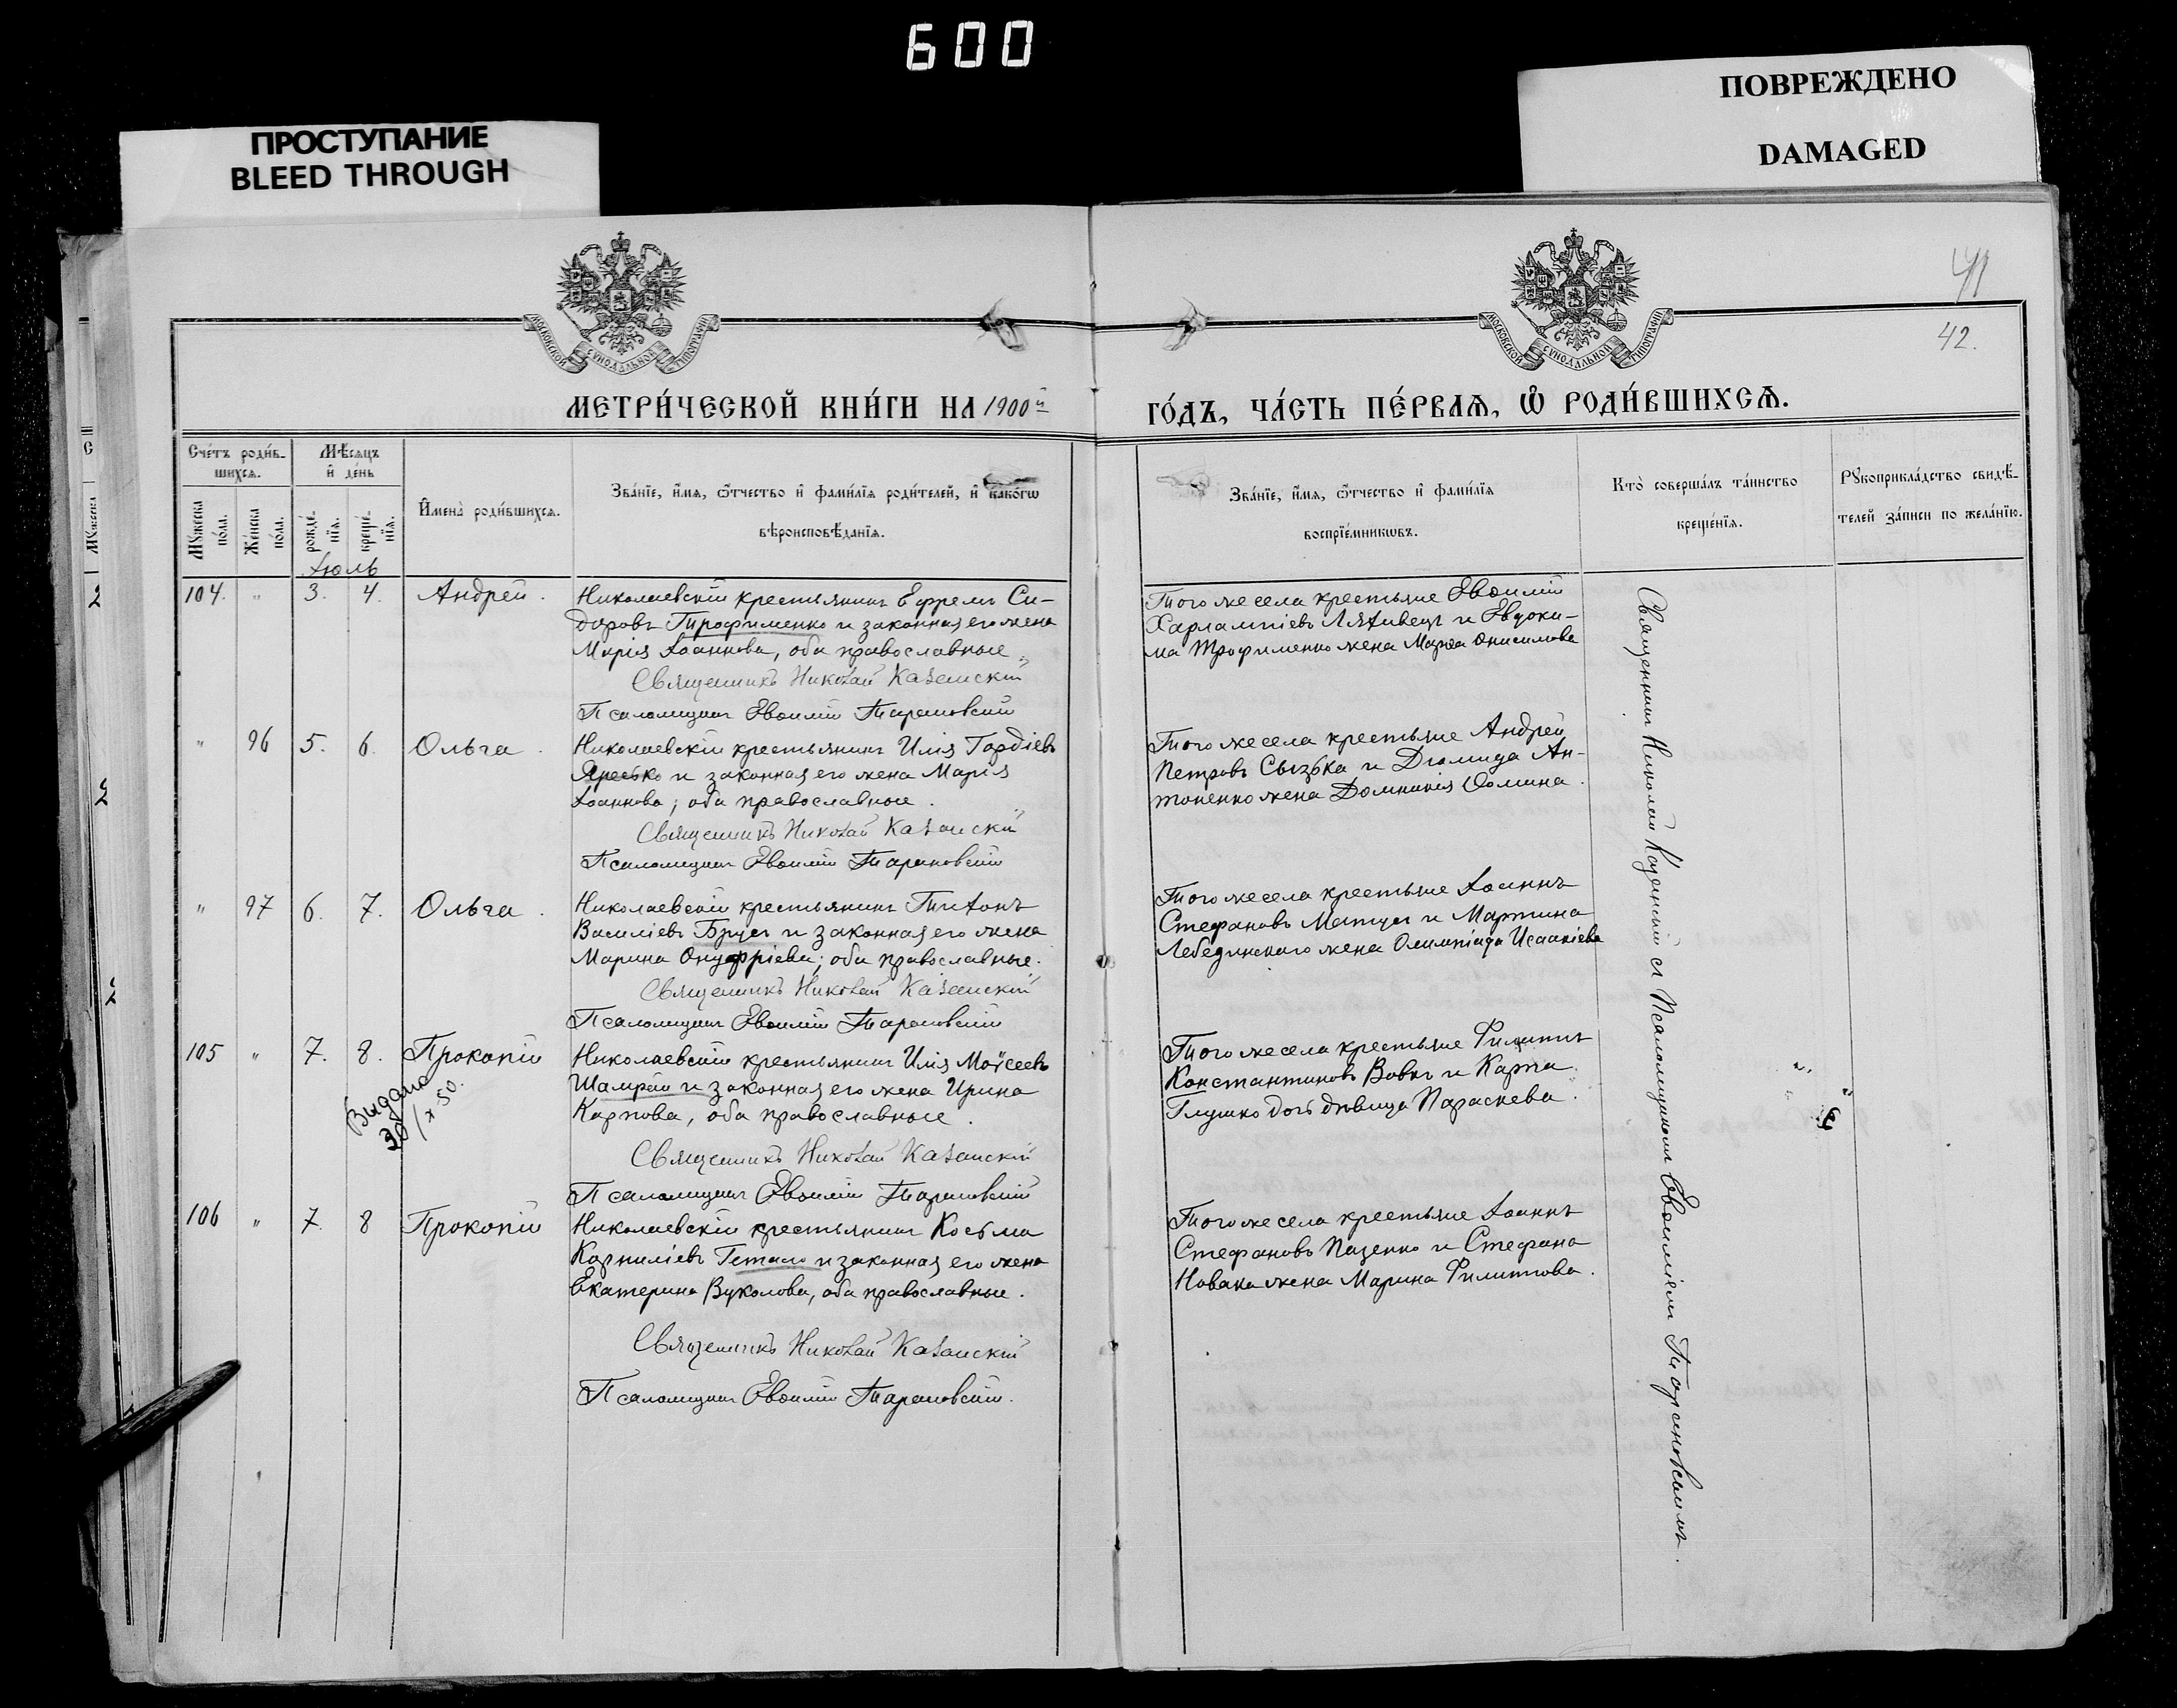 600
ПРОСТУПАНИЕ
BLEED THROUGH
ПОВРЕЖДЕНО
DAMAGED
МОСКОВСКОЙ СѴНОДАЛЬНОЙ ТИПОГРАФІИ
МОСКОВСКОЙ СѴНОДАЛЬНОЙ ТИПОГРАФІИ
41
42.
МЕТРИ́ЧЕСКОЙ КНИ́ГИ НА 1900й
ГО́ДЪ, ЧА́СТЬ ПЕ́РВАѦ, Ѡ҆ РОДИ́ВШИХСѦ.
Сче́тъ роди́в-
шихсѧ.
Мꙋжеска по́ла.
Же́нска по́ла.
Мѣ́сѧцъ
и҆ де́нь
рожде́-
нїѧ.
креще́-
нїѧ.
И҆мена̀ роди́вшихсѧ.
Зва́нїе, и҆́мѧ, ѻ҆́тчество и҆ фами́лїѧ роди́телей, и҆ како́гѡ
вѣроисповѣ́данїѧ.
Зва́нїе, и҆́мѧ, ѻ҆́тчество и҆ фами́лїѧ
воспрїе́мникѡвъ.
Кто̀ соверша́лъ та́инство
креще́нїѧ.
Рꙋкоприкла́дство свидѣ́-
телей за́писи по жела́нїю.
Іюль
104. " 3. 4. Андрей.
Николаевскій крестьянинъ Ефремъ Си-
доровъ Трофименко и законная его жена
Марія Іоаннова, оба православные.
Священникъ Николай Казанскій
Псаломщикъ Евѳимій Тарановскій
Того же села крестьяне Евѳимій
Харлампіевъ Лятивецъ и Евдоки-
ма Трофименко жена Марѳа Онисимова
" 96 5. 6. Ольга.
Николаевскій крестьянинъ Илія Гордіевъ
Яресько и законная его жена Марія
Іоаннова; оба православные.
Священникъ Николай Казанскій
Псаломщикъ Евѳимій Тарановскій
Того же села крестьяне Андрей
Петровъ и Діомида Ан-
тоненко жена Домникія Ѳомина.
" 97 6. 7. Ольга.
Николаевскій крестьянинъ Тихонъ
Василіевъ Брусъ и законная его жена
Марина Онуфріева; оба православные.
Священникъ Николай Казанскій
Псаломщикъ Евѳимій Тарановскій
Того же села крестьяне Іоаннъ
Стефановъ Матусъ и Мартина
Лебединскаго жена Олимпіада Исаакіева
105 " 7. 8. Прокопій
Выдано
30/X 50.
Николаевскій крестьянинъ Илія Моѵсеевъ
Шамрай и законная его жена Ирина
Карпова, оба православные.
Священникъ Николай Казанскій
Псаломщикъ Евѳимій Тарановскій
Того же села крестьяне Филиппъ
Константиновъ Вовкъ и Карпа
Глушко дочь дѣвица Параскева.
106 " 7. 8 Прокопій
Николаевскій крестьянинъ Косьма
Корниліевъ и законная его жена
Екатерина Вуколова, оба православные.
Священникъ Николай Казанскій
Псаломщикъ Евѳимій Тарановскій.
Того же села крестьяне Іоаннъ
Стефановъ Паценко и Стефана
Новака жена Марина Филиппова.
Священникъ Николай Казанскій съ Псаломщикомъ Евѳиміемъ Тарановскимъ.